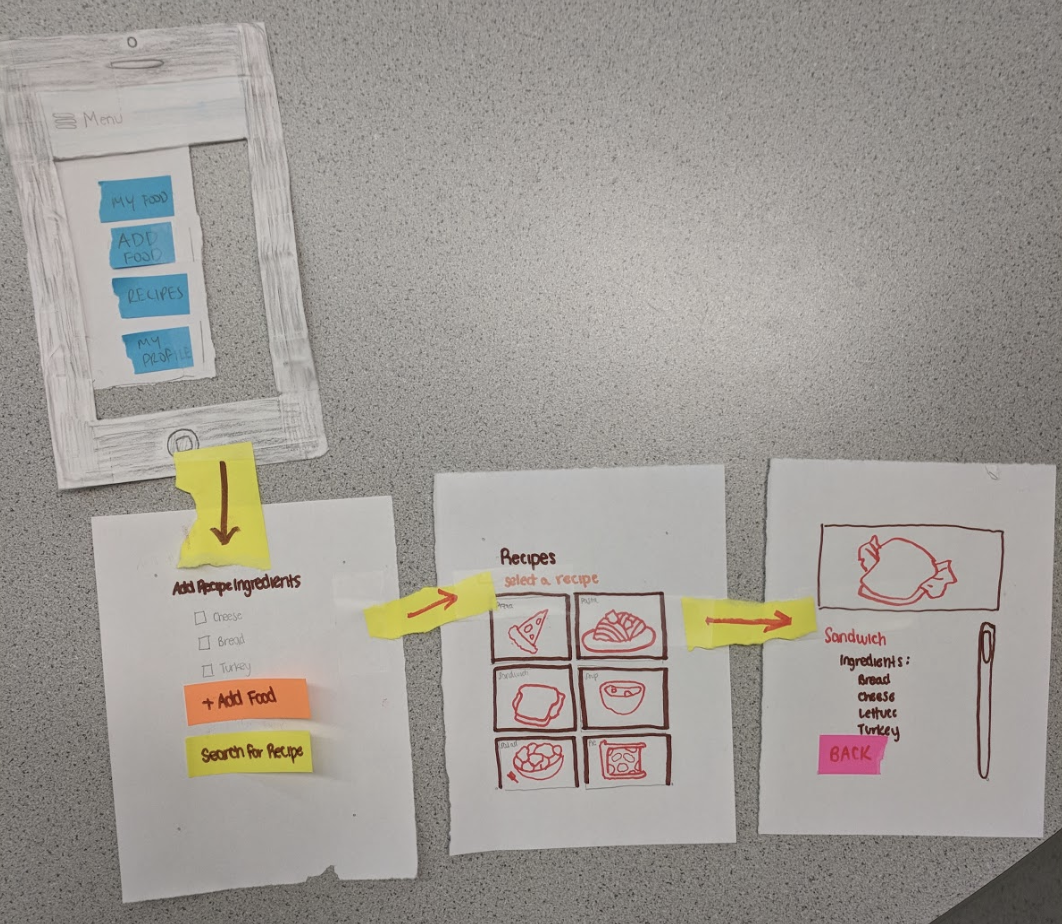 Menu
MY FOOD
ADD
FOOD
RECIPES
MY
PROFILE
Add Recipe Ingredients
Cheese
Bread
Turkey
+ Add Food
Search for Recipe
Recipes
select a recipe
Sandwich
Ingredients:
Bread
Cheese
Lettuce
Turkey
BACK